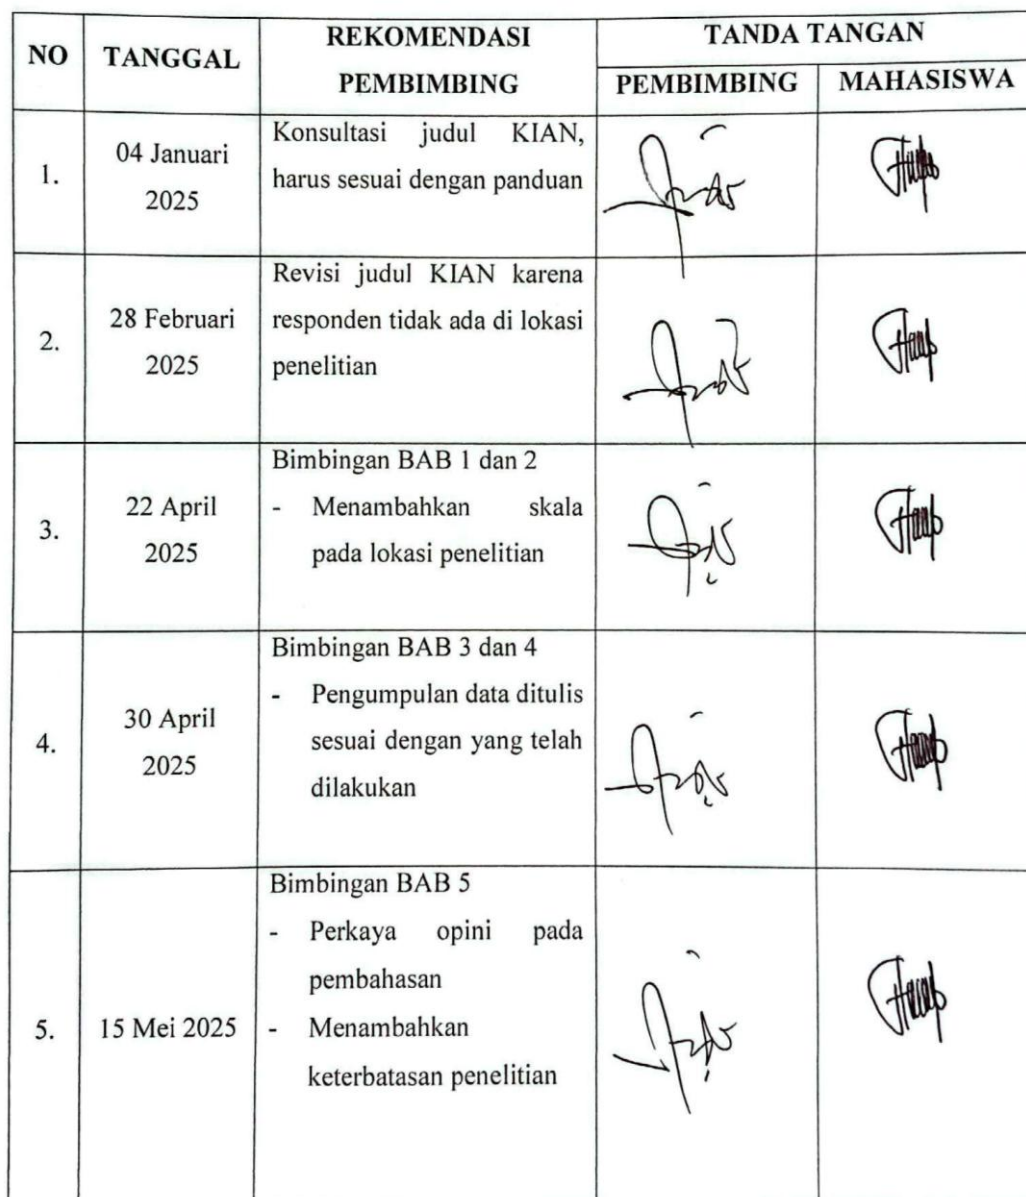 NO
TANGGAL
REKOMENDASI
PEMBIMBING
TANDA TANGAN
PEMBIMBING
MAHASISWA
1.
04 Januari
2025
Konsultasi judul KIAN,
harus sesuai dengan panduan
2.
28 Februari
2025
Revisi judul KIAN karena
responden tidak ada di lokasi
penelitian
3.
22 April
2025
Bimbingan BAB 1 dan 2
- Menambahkan skala
pada lokasi penelitian
4.
30 April
2025
Bimbingan BAB 3 dan 4
- Pengumpulan data ditulis
sesuai dengan yang telah
dilakukan
5.
15 Mei 2025
Bimbingan BAB 5
- Perkaya opini pada
pembahasan
- Menambahkan
keterbatasan penelitian